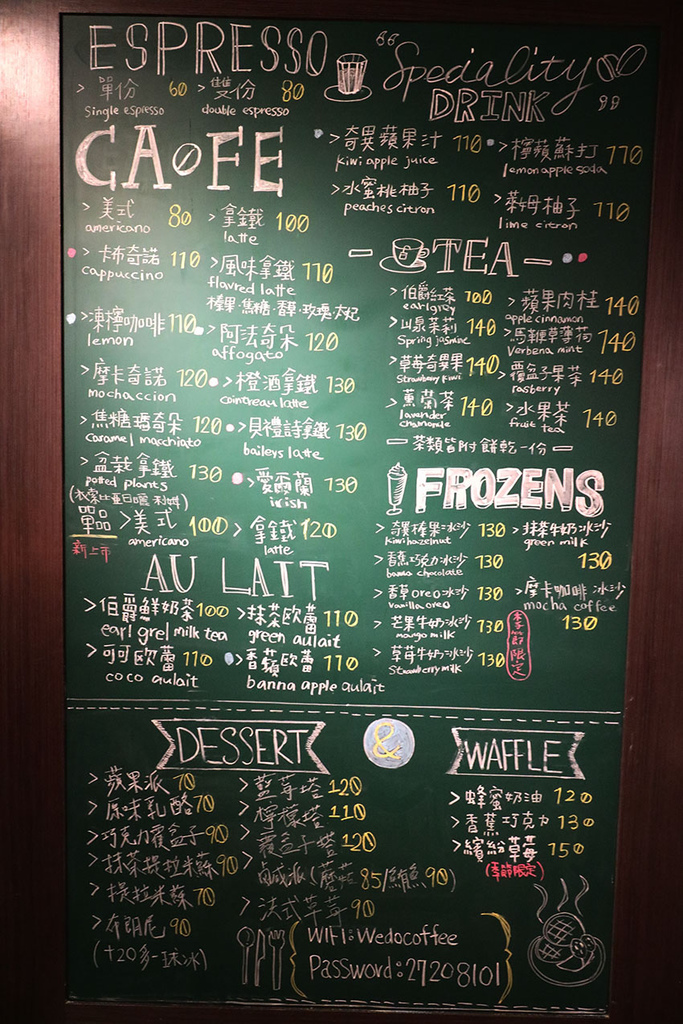 ESPRESSO
> 單份 60 > 雙份 80
single espresso double espresso
CAFE
> 美式 80 > 拿鐵 100
americano latte
> 卡布奇諾 110 > 風味拿鐵 110
cappuccino flavred latte
榛果·焦糖·香草·玫瑰·太妃
> 凍檸咖啡 110 > 阿法奇朵 120
lemon affogato
> 摩卡奇諾 120 > 橙酒拿鐵 130
mochaccion cointreau latte
> 焦糖瑪奇朵 120 > 貝禮詩拿鐵 130
caramel macchiato baileys latte
> 盆栽拿鐵 130 > 愛爾蘭 130
potted plants irish
單品 > 美式 100 > 拿鐵 120
新上市 americano latte
AU LAIT
> 伯爵鮮奶茶 100 > 抹茶歐蕾 110
earl grel milk tea green aulait
> 可可歐蕾 110 > 香蘋歐蕾 110
coco aulait banna apple aulait
“ Speciality
DRINK ”
> 奇異蘋果汁 110 > 檸蘋蘇打 110
kiwi apple juice lemon apple soda
> 水蜜桃柚子 110 > 萊姆柚子 110
peaches citron lime citron
- TEA -
> 伯爵紅茶 100 > 蘋果肉桂 140
earl grey apple cinnamon
茉莉 140 > 馬鞭草薄荷 140
Spring jasmine Verbena mint
> 草莓奇異果 140 > 覆盆子果茶 140
Strawberry kiwi rasberry
> 薰蘭茶 140 > 水果茶 140
lavender fruit tea
chamomile
— 茶類皆附餅乾一份 —
FROZENS
> 奇異榛果冰沙 130 > 抹茶牛奶冰沙
kiwi hazelnut green milk
130
> 香蕉巧克力冰沙 130
banna chocolate
> 香草oreo冰沙 130 > 摩卡咖啡冰沙
vanilla oreo mocha coffee
130
> 芒果牛奶冰沙 130
mango milk
> 草莓牛奶冰沙 130
Strawberry milk
季節限定
DESSERT & WAFFLE
> 蘋果派 70 > 藍莓塔 120
> 原味乳酪 70 > 檸檬塔 110
> 巧克力覆盆子 90 > 覆盆子塔 120
> 抹茶提拉米蘇 90 > 鹹派(蘑菇85/鮪魚90)
> 提拉米蘇 70 > 法式草莓 90
> 布朗尼 90
(+20多一球冰)
> 蜂蜜奶油 120
> 香蕉巧克力 130
> 繽紛草莓 150
(季節限定)
WIFI: Wedocoffee
Password: 27208101